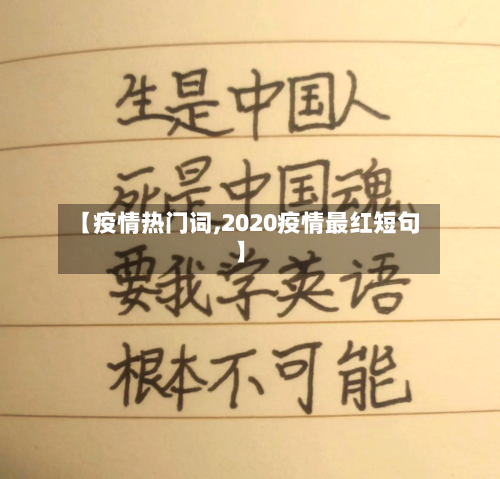 生是中国人
死是中国魂
【疫情热门词,2020疫情最红短句
】
要我学英语
根本不可能